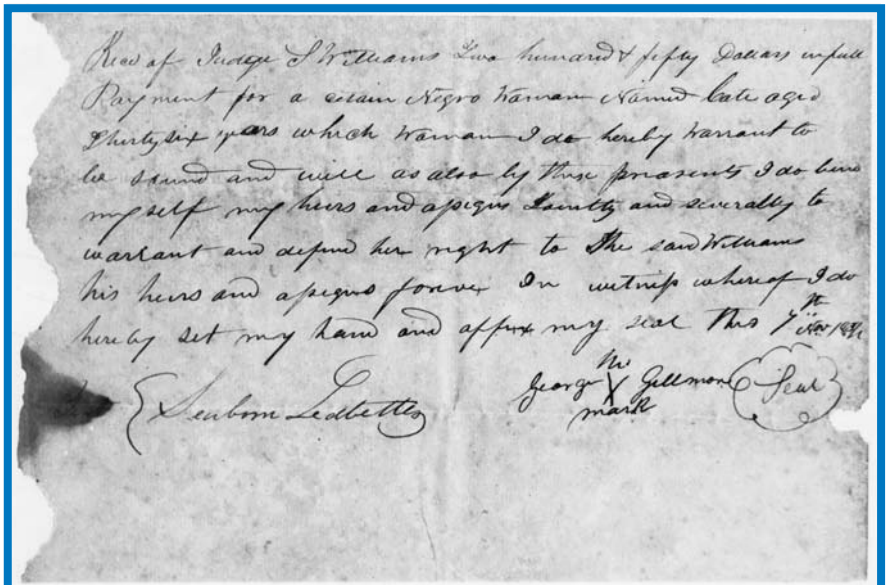 Recd of Judge S Williams Two hundred & fifty Dollars in full
Payment for a certain Negro Woman Named Cate aged
Thirty six years which Woman I do hereby Warrant to
be sound and well as also by these presents I do bind
my self my heirs and assigns Jointly and severally to
warrant and defend her right to the said Williams
his heirs and assigns forever In witness whereof I do
hereby set my hand and affix my seal this 7th
his
George X Gillmore Seal
mark
Seaborn Ledbetter